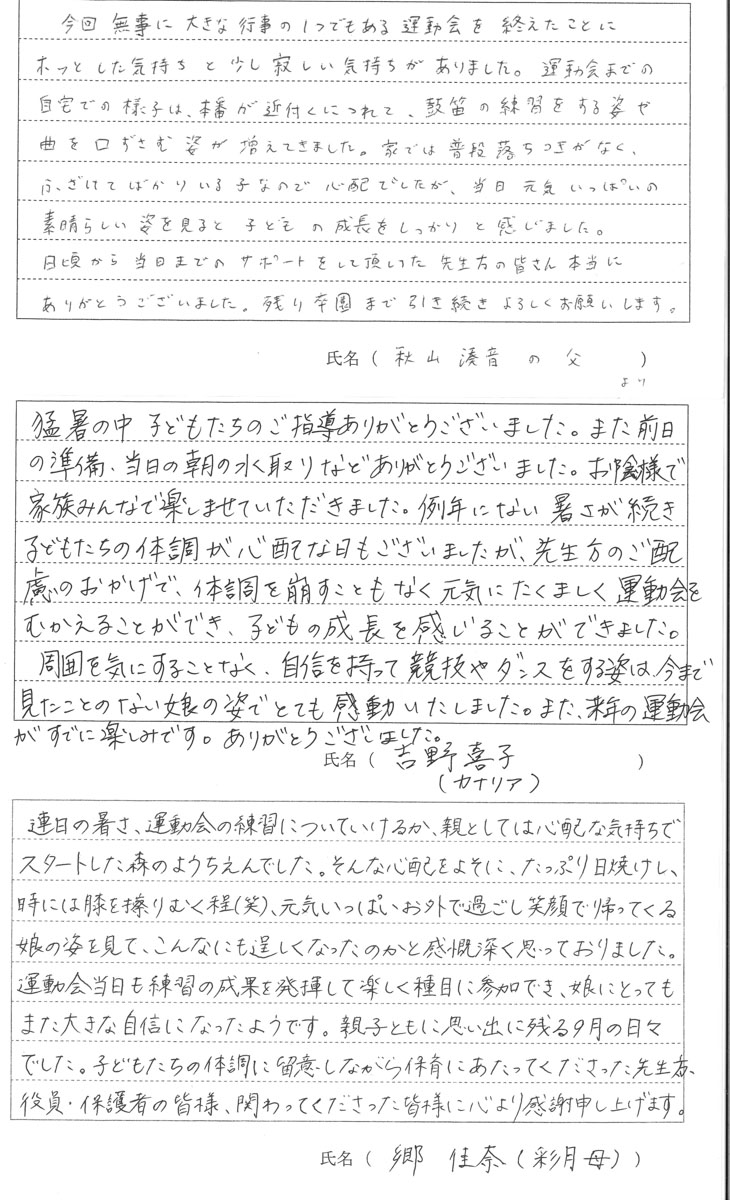 今回 無事に 大きな行事の1つでもある 運動会を 終えたことに
ホッとした気持ちと少し寂しい気持ちがありました。運動会までの
自宅での様子は、本番が近付くにつれて、鼓笛の練習をする姿や
曲を口ずさむ姿が増えてきました。家では普段落ちつきがなく、
ふざけてばかりいる子なので心配でしたが、当日元気いっぱいの
素晴らしい姿を見ると子どもの成長をしっかりと感じました。
日頃から当日までのサポートをして頂いてた先生方の皆さん本当に
ありがとうございました。残り卒園まで引き続きよろしくお願いします。
氏名（秋山湊音の父）
より
猛暑の中 子どもたちのご指導ありがとうございました。また前日
の準備、当日の朝の水取りなどありがとうございました。お陰様で
家族みんなで楽しませていただきました。例年にない暑さが続き
子どもたちの体調が心配な日もございましたが、先生方のご配
慮のおかげで、体調を崩すこともなく元気にたくましく運動会を
むかえることができ、子どもの成長を感じることができました。
周囲を気にすることなく、自信を持って競技やダンスをする姿は、今まで
見たことのない娘の姿でとても感動いたしました。また、来年の運動会
がすでに楽しみです。ありがとうございました。
氏名（吉野喜子）
（カナリア）
連日の暑さ、運動会の練習についていけるか、親としては心配な気持ちで
スタートした森のようちえんでした。そんな心配をよそに、たっぷり日焼けし、
時には膝を擦りむく程(笑)、元気いっぱいお外で過ごし笑顔で帰ってくる
娘の姿を見て、こんなにも逞しくなったのかと感慨深く思っておりました。
運動会当日も練習の成果を発揮して楽しく種目に参加でき、娘にとっても
また大きな自信になったようです。親子ともに思い出に残る9月の日々
でした。子どもたちの体調に留意しながら保育にあたってくださった先生方、
役員・保護者の皆様、関わってくださった皆様に心より感謝申し上げます。
氏名（郷 佳奈（彩月母））